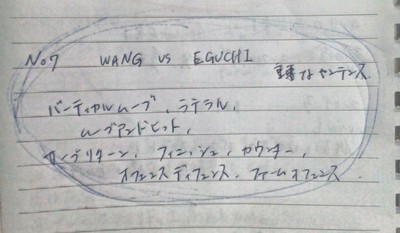 No7 WANG VS EGUCHI
重要なセンテンス
バーティカルムーブ, ラテラル,
ムーブアンドヒット,
サーブリターン, フィニッシュ, カウンター,
オフェンスディフェンス. ファームオフェンス